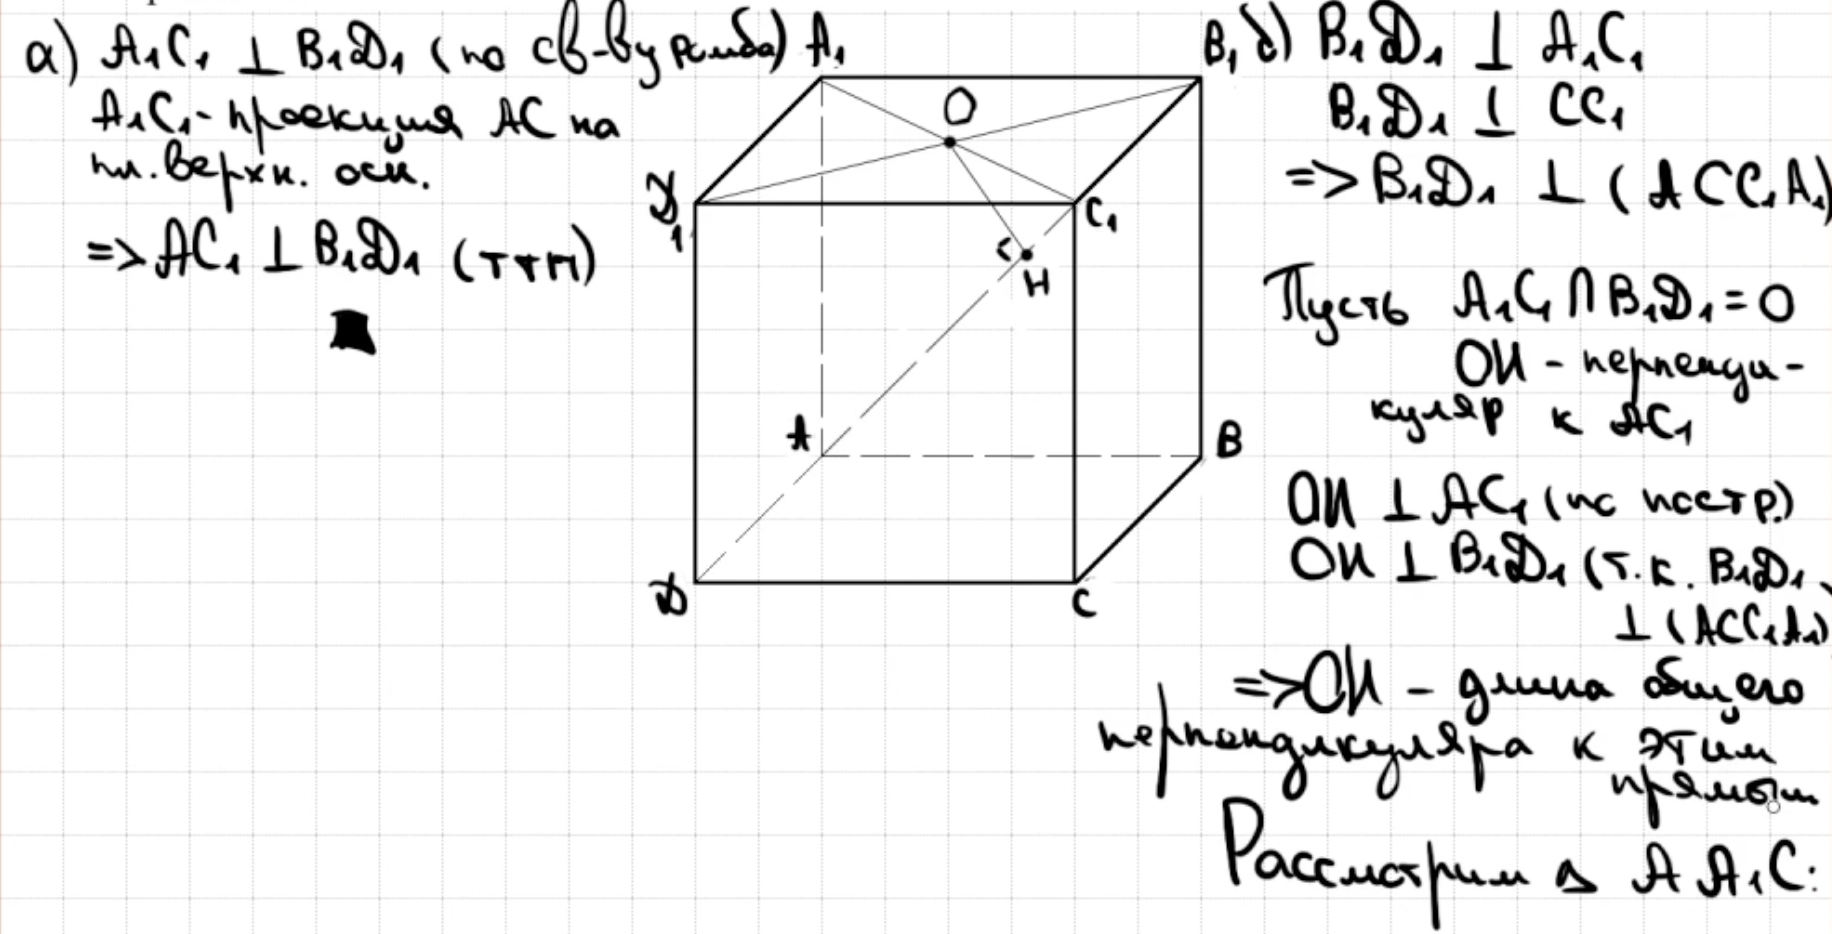 а) A₁C₁ ⊥ B₁D₁ (по св-ву ромба)
A₁C₁- проекция AC на
пл. верхн. осн.
=> AC₁ ⊥ B₁D₁ (ттп)
A₁
B₁
O
D₁
C₁
H
A
B
D
C
б) B₁D₁ ⊥ A₁C₁
B₁D₁ ⊥ CC₁
=> B₁D₁ ⊥ (ACC₁A₁)
Пусть A₁C₁ ∩ B₁D₁ = O
OH - перпенди-
куляр к AC₁
OH ⊥ AC₁ (по постр.)
OH ⊥ B₁D₁ (т.к. B₁D₁
⊥ (ACC₁A₁)
=> OH - длина общего
перпендикуляра к этим
прямым
Рассмотрим △ AA₁C: